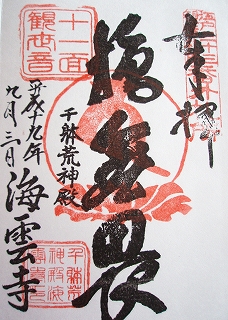 奉拝
施無畏
千躰荒神殿
平成十九年
九月三日
海雲寺
十一面
観世音
千躰荒
神殿海